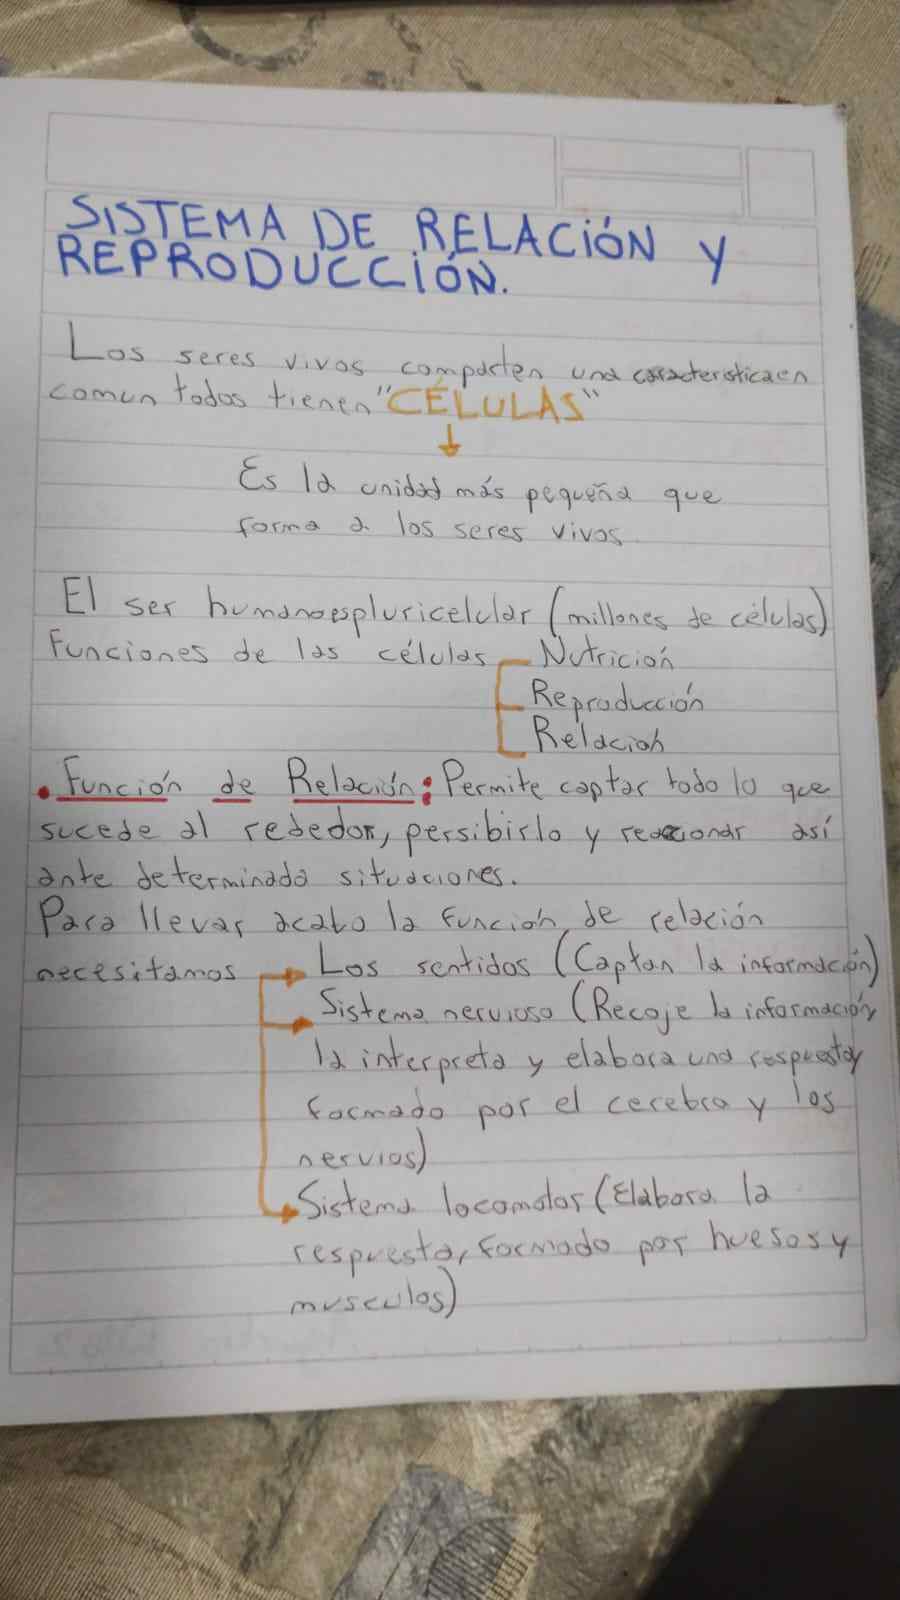 SISTEMA DE RELACIÓN Y
REPRODUCCIÓN.
Los seres vivos comparten una caracteristica en
comun todos tienen "CÉLULAS"
Es la unidad más pequeña que
forma a los seres vivos
El ser humano es pluricelular (millones de células)
Funciones de las células Nutrición
Reproducción
Relación
. Función de Relación: Permite captar todo lo que
sucede al rededor, persibirlo y reaccionar así
ante determinada situaciones.
Para llevar acabo la función de relación
necesitamos Los sentidos (Captan la información)
Sistema nervioso (Recoje la información
la interpreta y elabora una respuesta,
formado por el cerebro y los
nervios)
Sistema locomotor (Elabora la
respuesta, formado por huesos y
musculos)